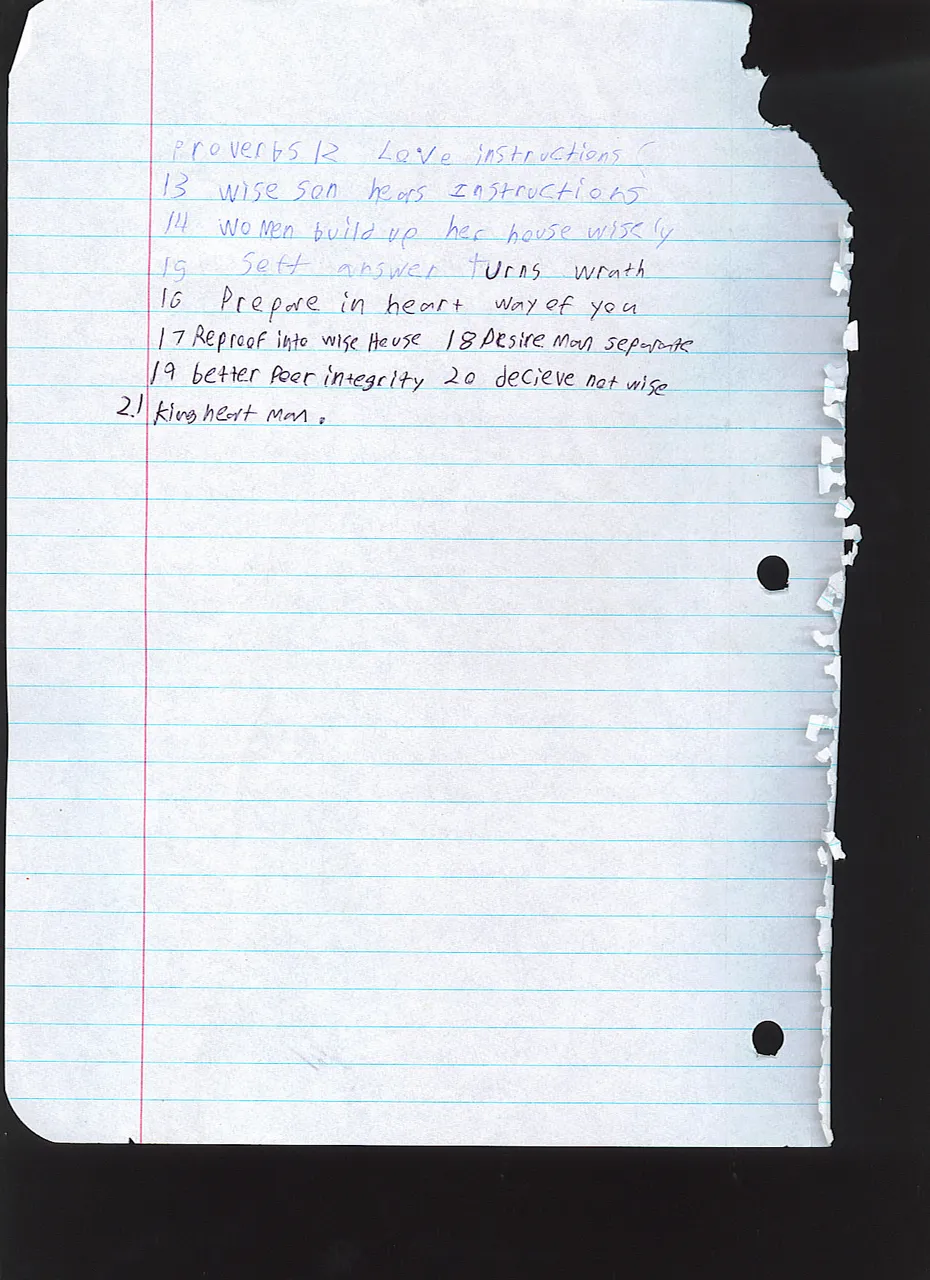 Proverbs 12 Love instructions
13 wise son hears Instructions
14 women build up her house wisely
15 Soft answer turns wrath
16 Prepare in heart way of you
17 Reproof into wise House 18 Desire Man separate
19 better Poor integrity 20 decieve not wise
21 King heart man.